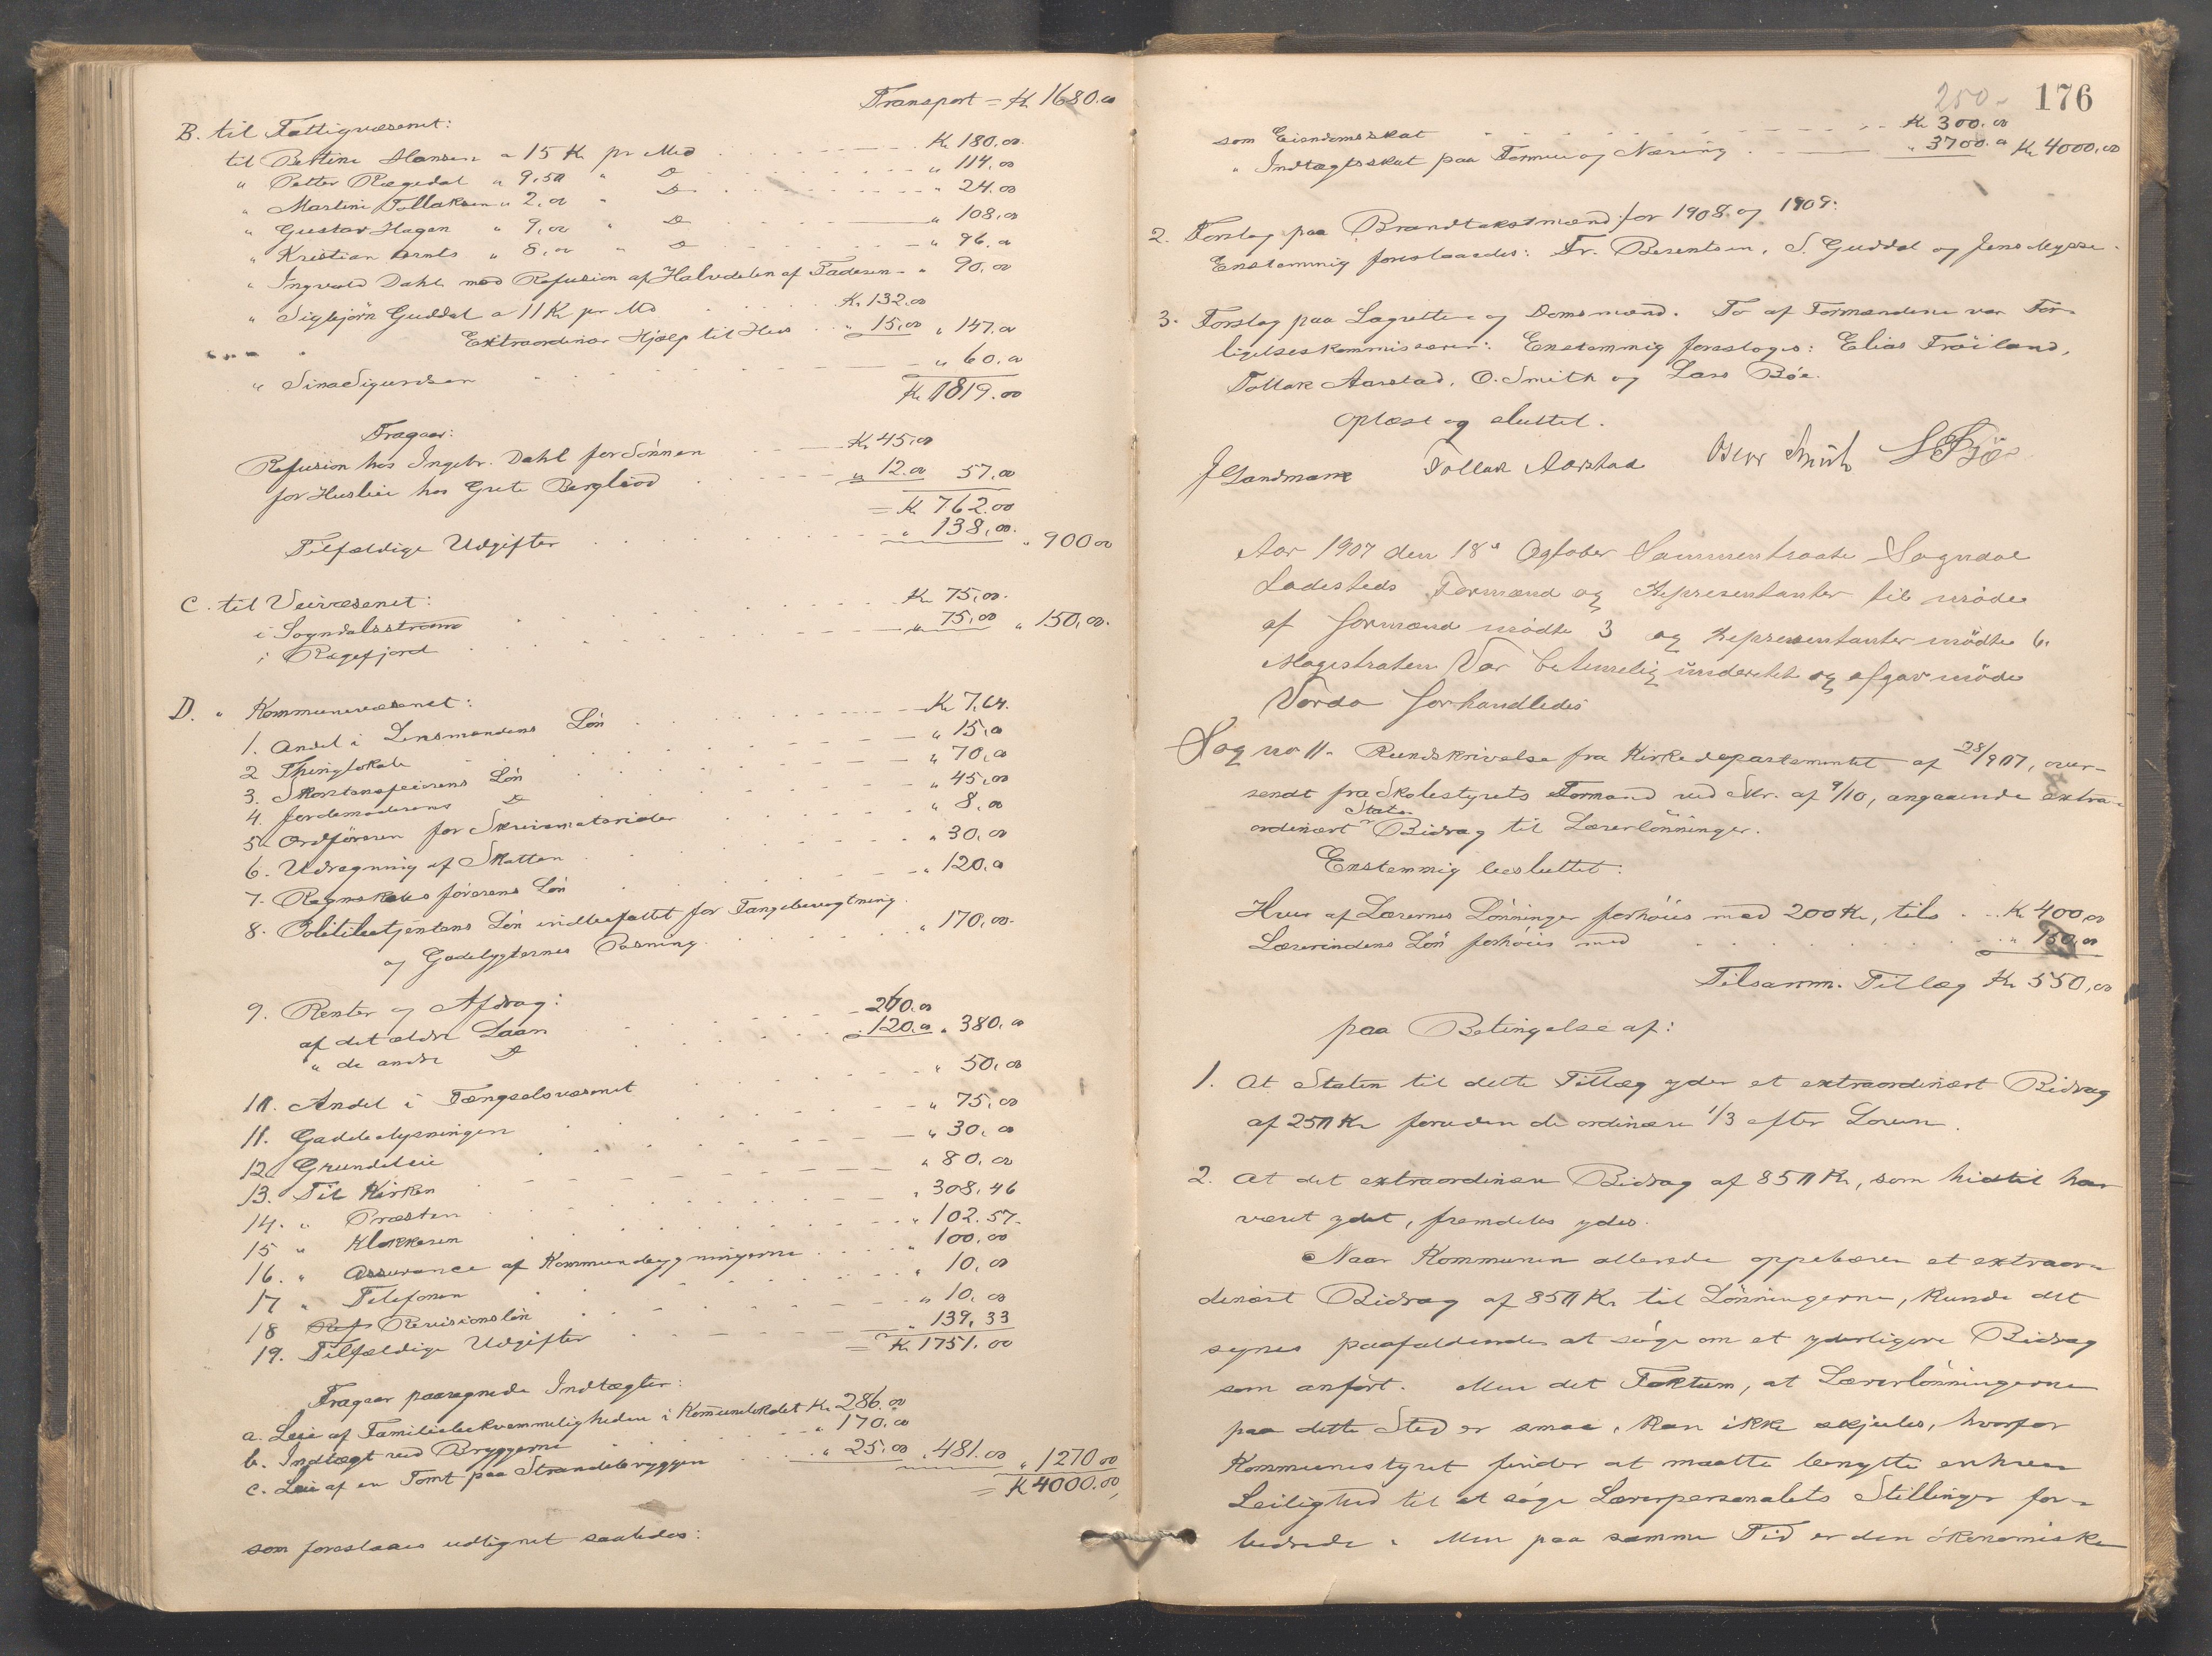 Transport = Kr 1680.00
B. til Fattigvæsenet:
til Bertine Hansen a 15 Kr pr Md Kr 180,00.
" Petter Rægedal " 9,50 " Do " 114,00
" Martine Tollaksen " 2,00 " Do " 24.00
" Gustav Hagen " 9,00 " Do " 108,00
" Kristian " 8,00 " Do " 96.00
" Ingvald Dahl med Refusion af Halvdelen af Faderen " 90,00
" Sigbjörn Guddal a 11 Kr pr Md Kr. 132.00
" " Extraordinær Hjælp til Hus " 15,00 " 147.00
" Sina Sigurdsen " 60.00
Kr 819.00
Fragaar:
Refusion hos Ingebr. Dahl for Sönnen Kr 45,00
for Husleie hos Grete Berglioid " 12.00 57,00
= Kr 762.00
Tilfældige Udgifter " 138,00. " 900 00
C. til Veivæsenet:
i Sogndalsstrøm Kr 75,00.
i Rægefjord " 75,00 " 150,00.
D. " Kommunevæsenet:
1. Andel i Lensmandens Lön Kr 7,64.
2 Thinglokale " 15,00
3. Skorstensfeierens Lön " 70,00
4. Jordemoderens Do " 45,00
5. Ordföreren for Skrivematerialer " 8,00
6. Udregning af Skatten " 30,00
7. Regnskabsførerens Lön " 120,00
8. Politibetjentens Lön indbefattet for Fangebevogtning
og Gadelygternes Pasning. " 170,00.
9. Renter og Afdrag:
af det ældre Laan 260.00
" de andre Do " 120.00 " 380,00
10. Andel i Fængselsvæsenet " 50,00
11. Gadebelysningen " 75,00
12 Grundleie " 30,00
13. Til Kirken " 80,00
14. " Præsten " 308,46
15 " Klokkeren " 102.57.
16. " Assurance af Kommunebygningerne " 100,00
17 " Telefonen " 10,00
18 Refs Revisionslön " 10,00
19. Tilfældige Udgifter " 139,33
= Kr. 1751.00
Fragaar paaregnede Indtægter:
a. Leie af Familiebekvemmeligheden i Komunelokalet Kr. 286.00
b. Indtægt ved Bryggerne " 170,00
c. Leie af en Tomt paa Strandebryggen " 25,00 " 481.00 " 1270 00
= Kr 4000.00
som foreslaaes udlignet saaledes:
250 - 176
som Eiendomsskat Kr 300.00
" Indtægtsskat paa Formue og Næring " 3700.00 Kr 4000,00
2. Forslag paa Brandtakstmænd for 1908 og 1909:
Enstemmig foreslaaedes: Fr. Berentsen, S. Guddal og Jens Mysse.
3. Forslag paa Lagrette- og Domsmænd. To af Formændene var For-
ligelseskommissærer: Enstemmig foresloges: Elias Fröiland,
Tollak Aarstad, O. Smith og Lars Böe.
Oplæst og sluttet.
J Sandmark Tollak Aarstad Oscar Smith L Böe
Aar 1907 den 18de Ogtober Sammentraate Sogndal
Ladesteds Formænd og Representanter til möde
af formænd mödte 3 og Representanter mödte 6.
Magistraten Var betimelig underrettet og afgav möde
Vorda forhandledes
Sag no 11. Rundskrivelse fra Kirkedepartementet af 28/9 07, over-
sendt fra Skolestyrets Formand ved Skr. af 9/10, angaaende extra-
ordinært Stats Bidrag til Lærerlönninger.
Enstemmig besluttet:
Hver af Lærernes Lönninger forhöies med 200 Kr, tils. Kr 400,00
Lærerindens Lön forhöies med " 150,00
Tilsamm. Tillæg Kr 550,00
paa Betingelse af:
1. At Staten til dette Tillæg yder et extraordinært Bidrag
af 250 Kr foruden de ordinære 1/3 efter Loven.
2. At det extraordinære Bidrag af 850 Kr, som hidtil har
været ydet, fremdeles ydes.
Naar Kommunen allerede oppebærer et extraor-
dinært Bidrag af 850 Kr til Lönningerne, kunde det
synes paafaldende at söge om et yderligere Bidrag
som anfört. Men det Faktum, at Lærerlönningerne
paa dette Sted er smaa, kan ikke skjules, hvorfor
Kommunestyret finder at maatte benytte enhver
Leilighed til at söge Lærerpersonalets Stillinger for-
bedrede. Men paa samme Tid er den ökonomiske